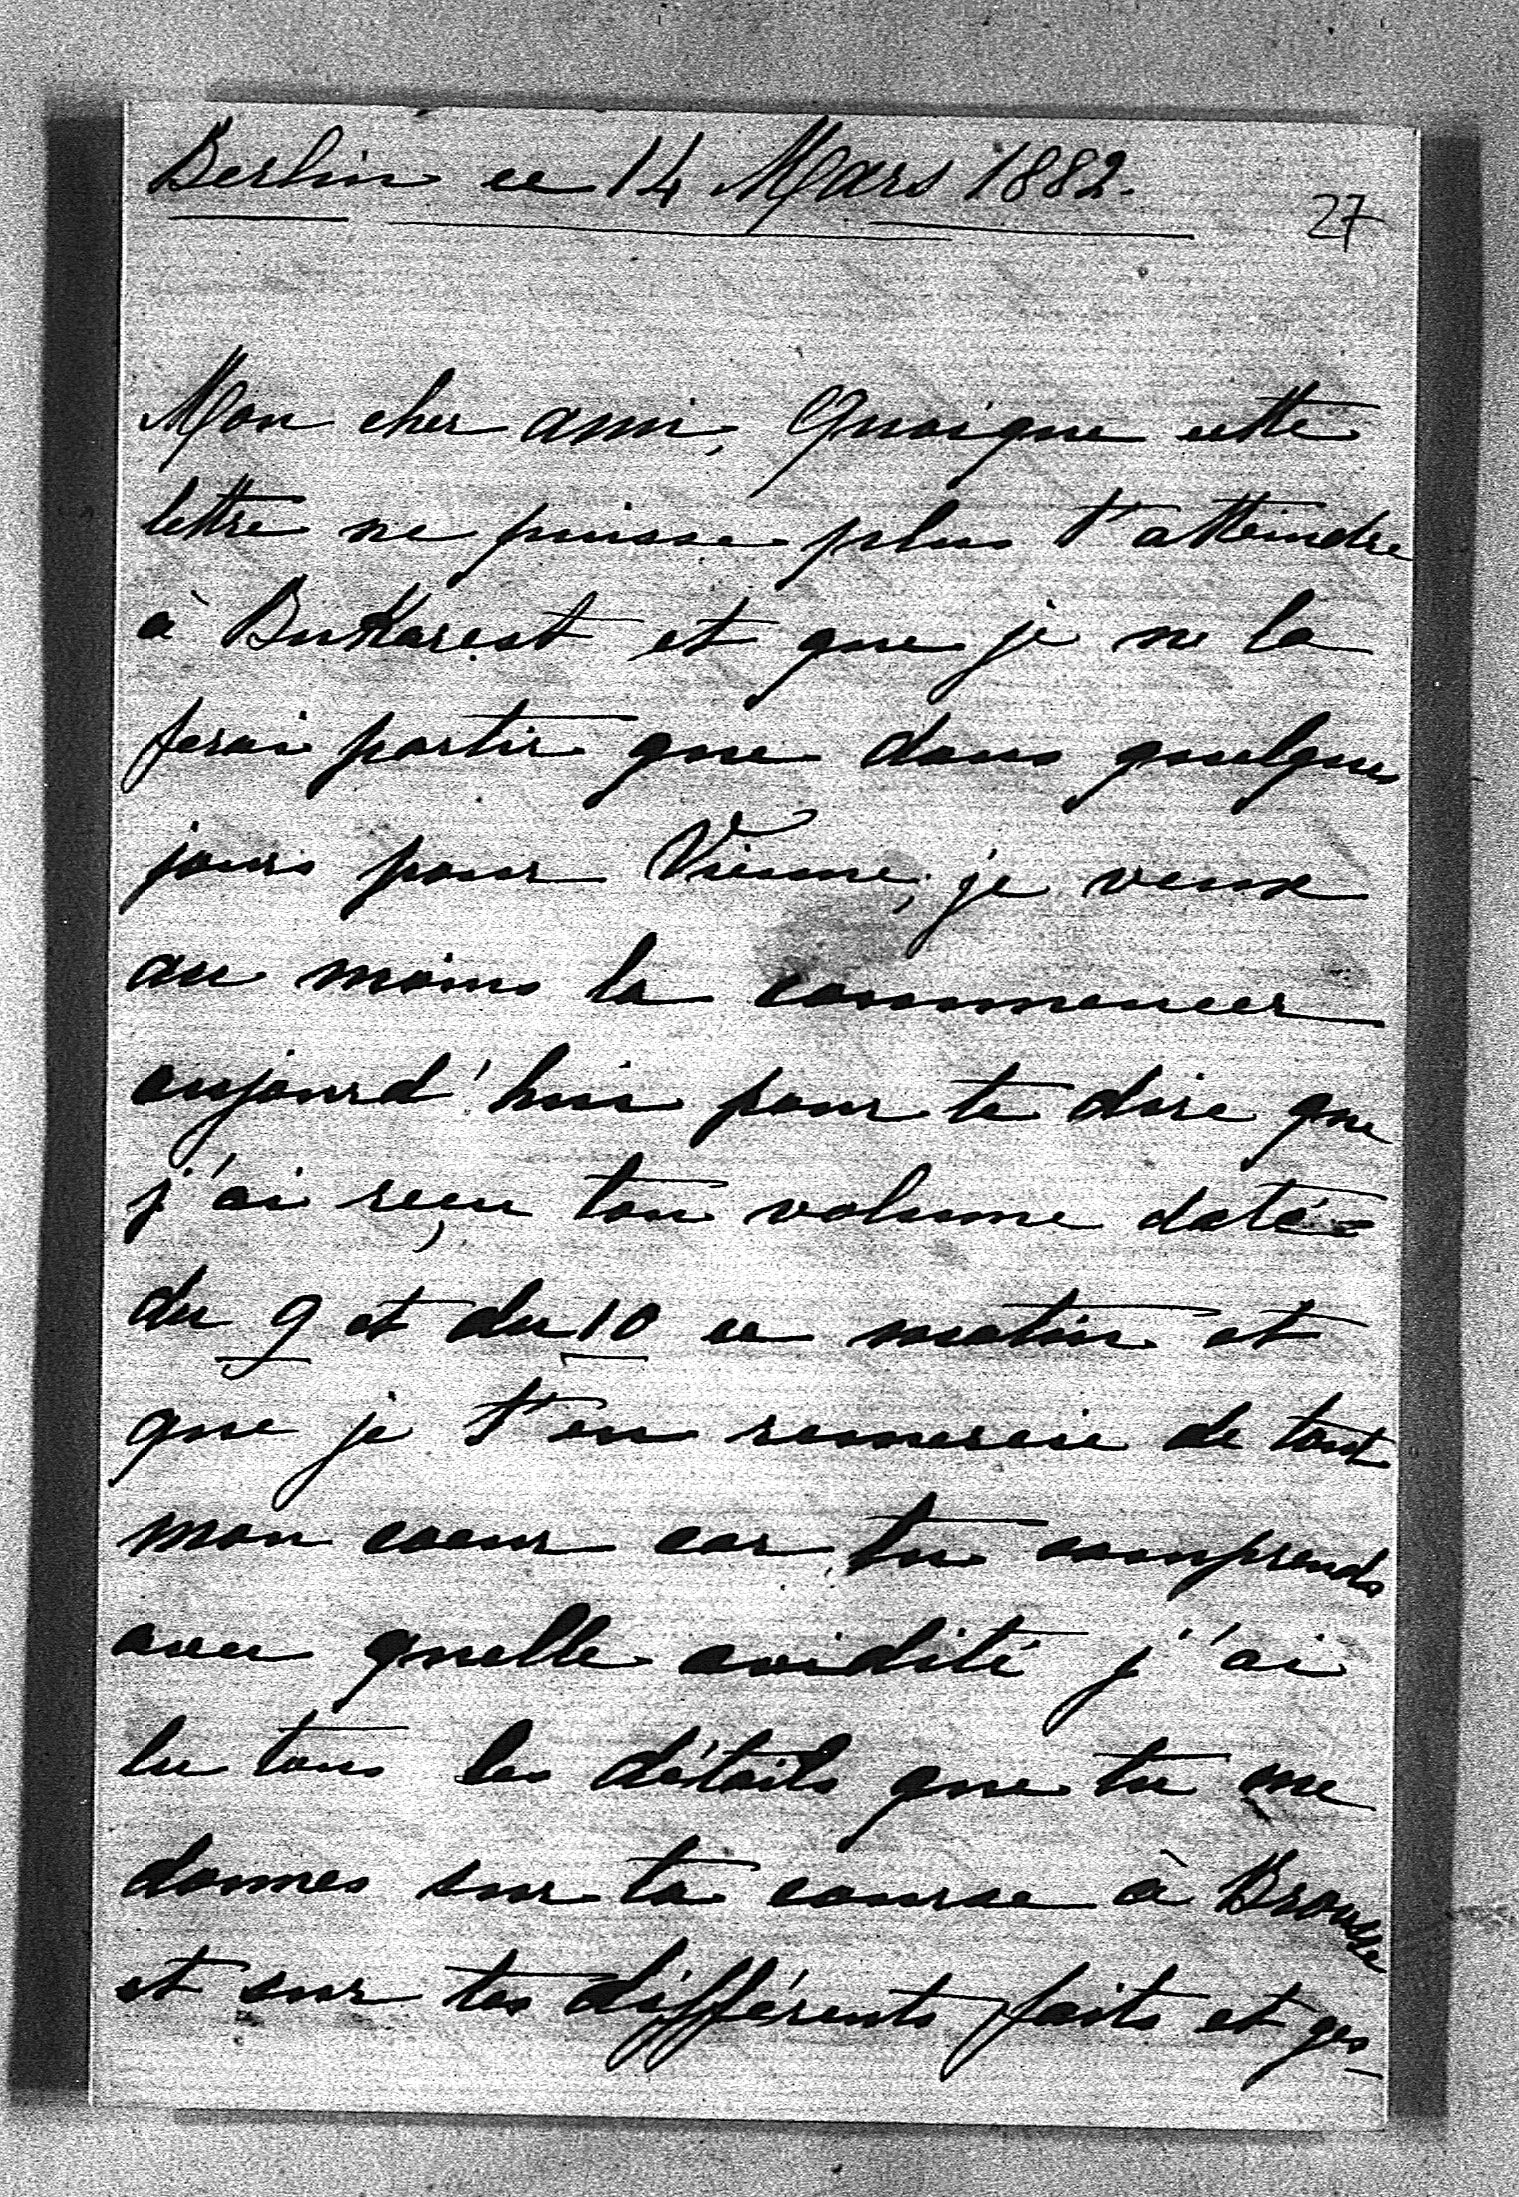 Berlin ce 14 Mars 1882.
27
Mon cher ami, Quoique cette
lettre ne puisse plus t'atteindre
à BuKarest et que je ne la
ferai partir que dans quelques
jours pour Vienne, je veux
au moins la commencer
aujourd'hui pour te dire que
j'ai reçu ton volume daté
du 9 et du 10 ce matin et
que je t'en remercie de tout
mon coeur car tu comprends
avec quelle avidité j'ai
lu tous les détails que tu me
donnes sur ta course à Brousse
et sur tes différents faits et ges-